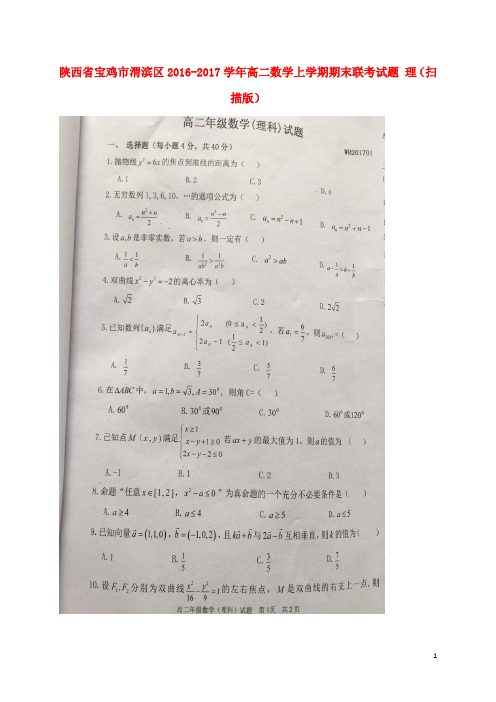 陕西省宝鸡市渭滨区 2016-2017 学年高二数学上学期期末联考试题 理（扫
描版）
高二年级数学(理科)试题
WB201701
一、 选择题（每小题 4 分，共 40 分）
1.抛物线 y² = 6x 的焦点到准线的距离为（ ）
A.1 B.2 C.3 D.4
2.无穷数列 1,3,6,10，…的通项公式为（ ）
A. aₙ = (n²+n)/2 B. aₙ = (n²−n)/2 C. aₙ = n²−n+1 D. aₙ = n²+n−1
3.设 a,b 是非零实数，若 a > b，则一定有（ ）
A. 1/a < 1/b B. 1/(ab²) > 1/(a²b) C. a² > ab D. a − 1/a > b − 1/b
4.双曲线 x² − y² = −2 的离心率为（ ）
A. √2 B. √3 C.2 D. 2√2
5.已知数列{aₙ}满足 aₙ₊₁ = { 2aₙ (0 ≤ aₙ < 1/2) , 2aₙ − 1 (1/2 ≤ aₙ < 1) ，若 a₁ = 6/7，则 a₂₀₁₇ =（ ）
A. 1/7 B. 3/7 C. 5/7 D. 6/7
6.在 ΔABC 中，a = 1, b = √3, A = 30⁰，则角 C=（ ）
A. 60⁰ B. 30⁰ 或 90⁰ C. 30⁰ D. 60⁰ 或 120⁰
7.已知点 M（x, y）满足 { x ≥ 1 , x − y + 1 ≥ 0 , 2x − y − 2 ≤ 0 若 ax + y 的最大值为 1，则 a 的值为 （ ）
A.-1 B.1 C.2 D.3
8.命题“任意 x ∈ [1,2]，x² − a ≤ 0 ”为真命题的一个充分不必要条件是（ ）
A. a ≥ 4 B. a ≤ 4 C. a ≥ 5 D. a ≤ 5
9.已知向量 a⃗ = (1,1,0)，b⃗ = (−1,0,2)，且 ka⃗ + b⃗ 与 2a⃗ − b⃗ 互相垂直，则 k 的值为（ ）
A.1 B. 1/5 C. 3/5 D. 7/5
10.设 F₁, F₂ 分别为双曲线 x²/16 − y²/9 = 1 的左右焦点，M 是双曲线的右支上一点，则
高二年级数学（理科）试题 第1页 共2页
1